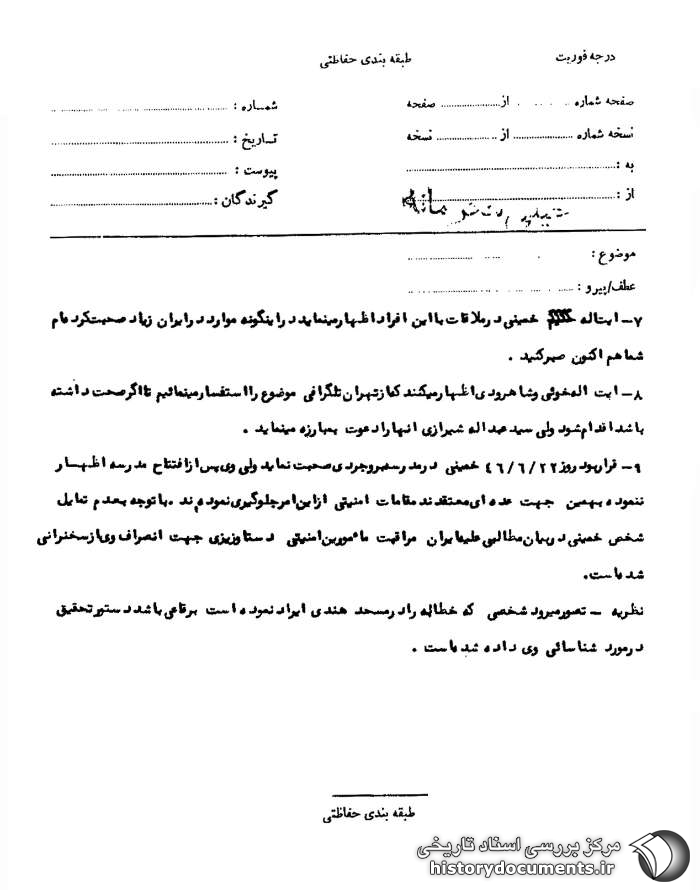 درجه فوریت
طبقه بندی حفاظتی
صفحه شماره .......... از .......... صفحه
شماره :
نسخه شماره .......... از .......... نسخه
تاریخ :
به :
پیوست :
از :
گیرندگان :
موضوع :
عطف/پیرو :
۷- ایتاله خمینی در ملاقات با این افراد اظهار مینماید در اینگونه موارد در ایران زیاد صحبت کرده ام
شما هم اکنون صبر کنید .
۸- ایت اله خوئی و شاهرودی اظهار میکنند که از تهران تلگرافی موضوع را استفسار مینمائیم تا اگر صحت داشته
باشد اقدام شود ولی سید عبداله شیرازی انها را دعوت بمبارزه مینماید .
۹- قرار بود روز ۴۶/۶/۲۲ خمینی در مدرسه بروجردی صحبت نماید ولی وی پس از افتتاح مدرسه اظهار
ننموده بهمین جهت عده ای معتقدند مقامات امنیتی از این امر جلوگیری نموده ند . با توجه بعدم تمایل
شخص خمینی در بیان مطالبی علیه ایران مراقبت مامورین امنیتی دستاویزی جهت انصراف وی از سخنرانی
شده است.
نظریه - تصور میرود شخصی که خطابه را در مسجد هندی ایراد نموده است برقاعی باشد دستور تحقیق
در مورد شناسائی وی داده شده است .
طبقه بندی حفاظتی
مرکز بررسی اسناد تاریخی
historydocuments.ir